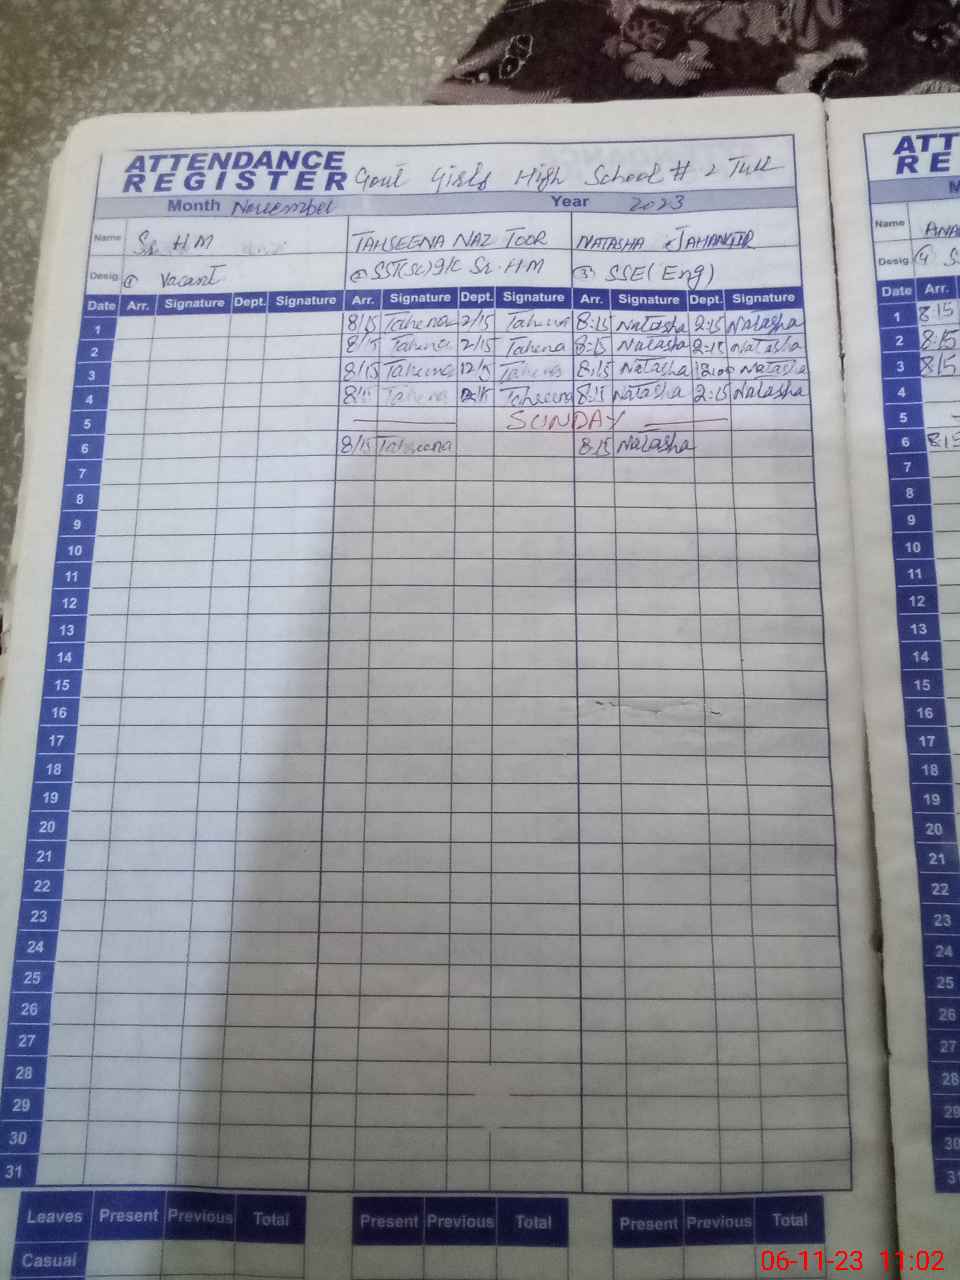 ATTENDANCE
REGISTER Govt Girls High School # 2 Tull
Month November Year 2023
Name Sr. H M TAHSEENA NAZ TOOR NATASHA JAHANGIR
Desig. ① Vacant ② SST(SC) I/C Sr. H M ③ SSE (Eng)
Date Arr. Signature Dept. Signature Arr. Signature Dept. Signature Arr. Signature Dept. Signature
1 8/15 Taheena 2/15 Taheena 8:15 Natasha 2:15 Natasha
2 8/15 Taheena 2/15 Taheena 8:15 Natasha 2:15 Natasha
3 8/15 Taheena 12/5 8:15 Natasha 12:00 Natasha
4 Taheena Taheena 8:15 Natasha 2:15 Natasha
5 SUNDAY
6 8/15 Tahseena 8:15 Natasha
7
8
9
10
11
12
13
14
15
16
17
18
19
20
21
22
23
24
25
26
27
28
29
30
31
Leaves Present Previous Total Present Previous Total Present Previous Total
Casual
ATT
RE
M
Name ANA
Desig. ④ S
Date Arr.
1 8:15
2 8:15
3 8:15
4
5
6 8:15
7
8
9
10
11
12
13
14
15
16
17
18
19
20
21
22
23
24
25
26
27
28
29
30
31
06-11-23 11:02